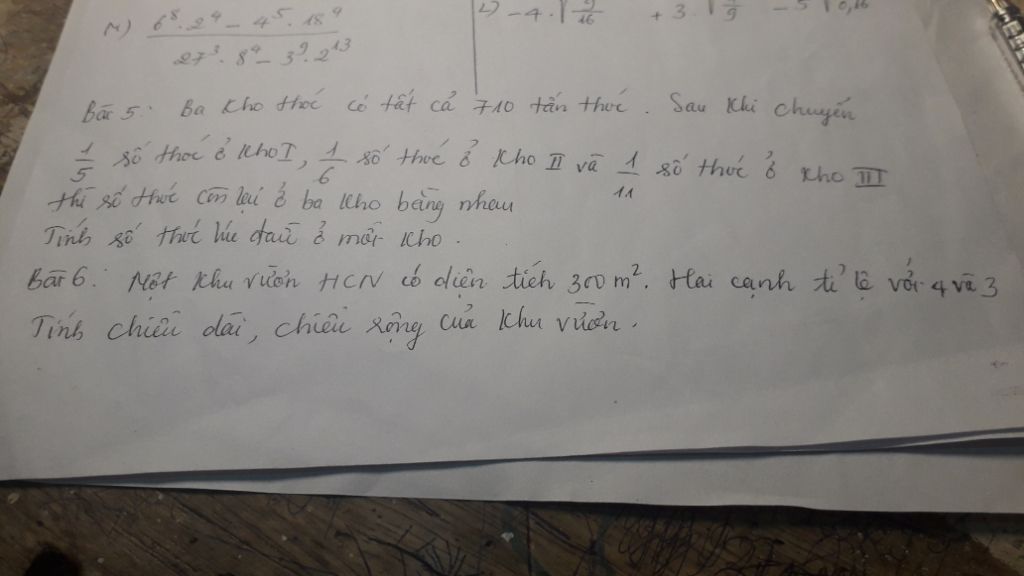 M) 6⁸ · 2⁴ − 4⁵ · 18⁴ / 27³ · 8⁴ − 3⁹ · 2¹³
L) −4 · √9/16 + 3 · √1/9 − 5 √0,16
Bài 5: Ba kho thóc có tất cả 710 tấn thóc. Sau khi chuyển
1/5 số thóc ở kho I, 1/6 số thóc ở kho II và 1/11 số thóc ở kho III
thì số thóc còn lại ở ba kho bằng nhau
Tính số thóc lúc đầu ở mỗi kho.
Bài 6: Một khu vườn HCN có diện tích 300 m². Hai cạnh tỉ lệ với 4 và 3
Tính chiều dài, chiều rộng của khu vườn.